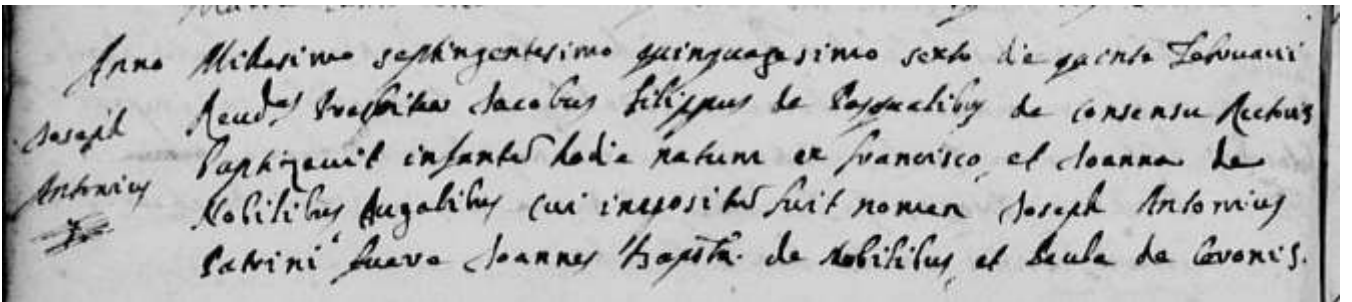 Anno Millesimo septingentesimo quinquagesimo sexto die quinta Februarii
Reud.us Præsbiter Jacobus Filippus de Pasqualibus de consensu Rectoris
Joseph
Baptizavit infantem hodie natum ex Francisco, et Joanna de
Antonius
Nobilibus Jugalibus cui impositum fuit nomen Joseph Antonius
Patrini fuere Joannes Bapta. de Nobilibus, et Paula de Ceronis.